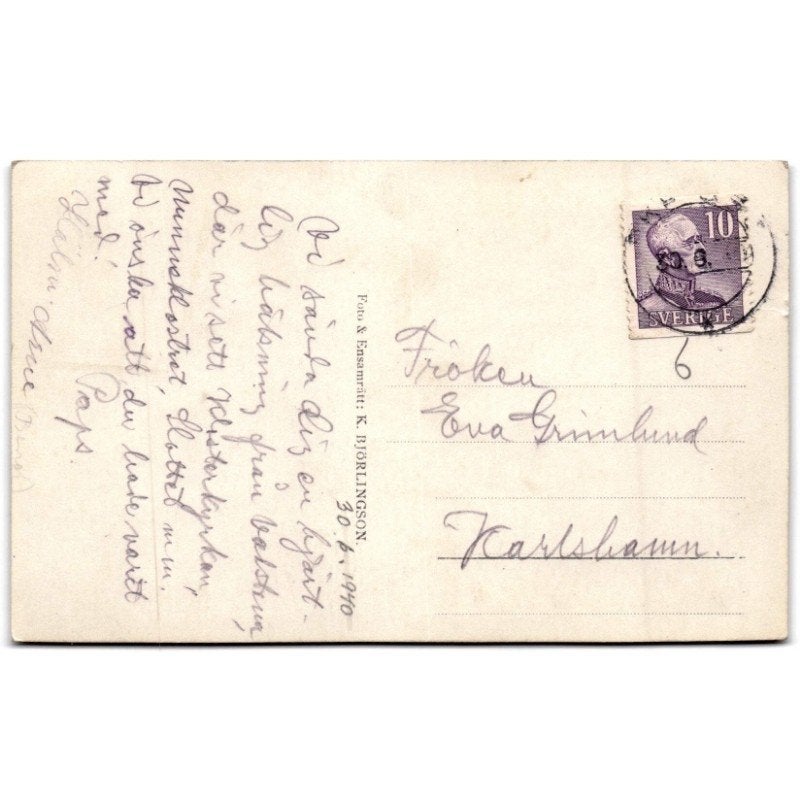 30.6.1940
Vi sända dig en hjärt-
lig hälsning från Vadstena,
där vi sett Klosterkyrkan,
Munnklostret, Slottet m.m.
Vi önska att du hade varit
med.
Paps.
Hälsn. Arne
Foto & Ensamrätt: K. BJÖRLINGSON.
10
SVERIGE
30 6.
6
Fröken
Eva Grimlund
Karlshamn.